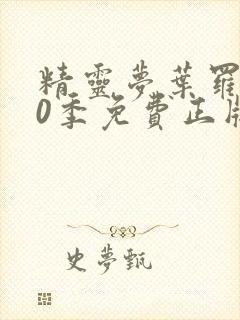 精靈夢葉羅
0季免費正版
史夢甄